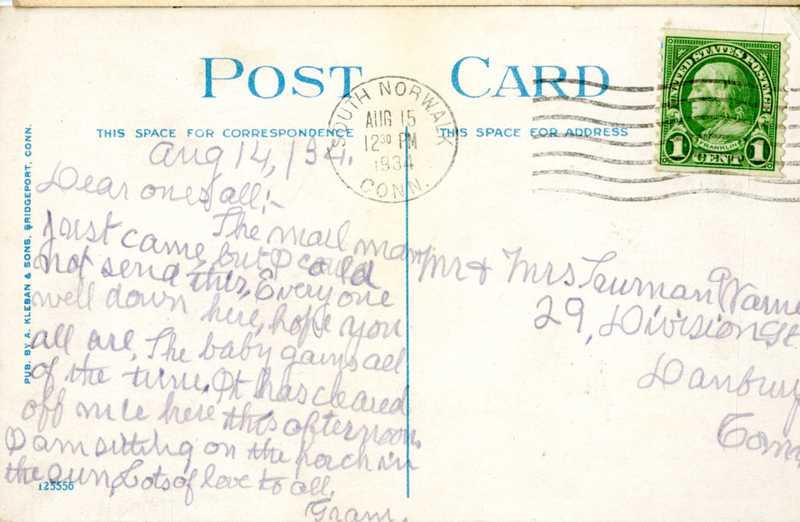 POST CARD
THIS SPACE FOR CORRESPONDENCE
THIS SPACE FOR ADDRESS
SOUTH NORWALK
AUG 15
12 30 PM
1934
CONN.
UNITED STATES POSTAGE
FRANKLIN
1 CENT 1
PUB. BY A. KLEBAN & SONS, BRIDGEPORT, CONN.
Aug 14, 134.
Dear ones all:-
The mail man
just came but I could
not send this, Everyone
well down here, hope you
all are. The baby gains all
of the time. It has cleared
off nice here this afternoon
I am sitting on the porch in
the sun, Lots of love to all.
Gram.
Mr & Mrs Turman Warne
29, Division St
Danbury
Conn
123556